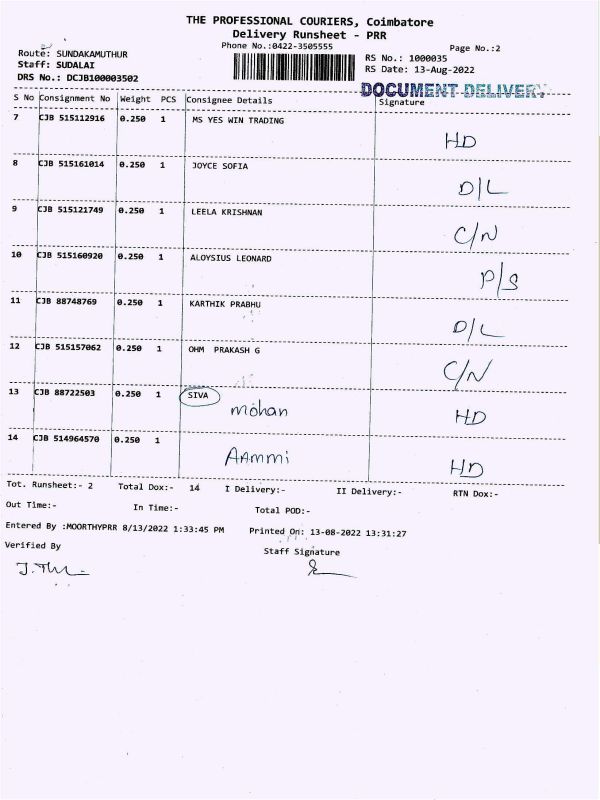 THE PROFESSIONAL COURIERS, Coimbatore
Delivery Runsheet - PRR
Phone No.:0422-3505555
Page No.:2
Route: SUNDAKAMUTHUR
RS No.: 1000035
Staff: SUDALAI
RS Date: 13-Aug-2022
DRS No.: DCJB100003502
DOCUMENT DELIVERY
S No Consignment No Weight PCS Consignee Details Signature
7 CJB 515112916 0.250 1 MS YES WIN TRADING HD
8 CJB 515161014 0.250 1 JOYCE SOFIA D/L
9 CJB 515121749 0.250 1 LEELA KRISHNAN C/N
10 CJB 515160920 0.250 1 ALOYSIUS LEONARD P/S
11 CJB 88748769 0.250 1 KARTHIK PRABHU D/L
12 CJB 515157062 0.250 1 OHM PRAKASH G C/N
13 CJB 88722503 0.250 1 SIVA mohan HD
14 CJB 514964570 0.250 1 AAmmi HD
Tot. Runsheet:- 2 Total Dox:- 14 I Delivery:- II Delivery:- RTN Dox:-
Out Time:- In Time:- Total POD:-
Entered By :MOORTHYPRR 8/13/2022 1:33:45 PM Printed On: 13-08-2022 13:31:27
Verified By Staff Signature